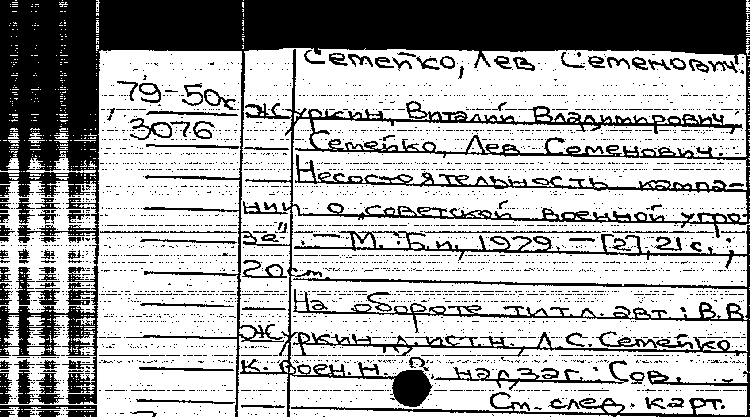 Семейко, Лев Семенович.
79-50к
3076
Журкин, Виталий Владимирович,
Семейко, Лев Семенович.
Несостоятельность кампа-
нии о „советской военной угро-
зе". — М. : Б.и, 1979. — [2], 21 с. ;
20 см.
На обороте тит. л. авт : В.В.
Журкин, д. ист. н., Л.С. Семейко,
к. воен. н. В надзаг. : Сов.
См. след. карт.